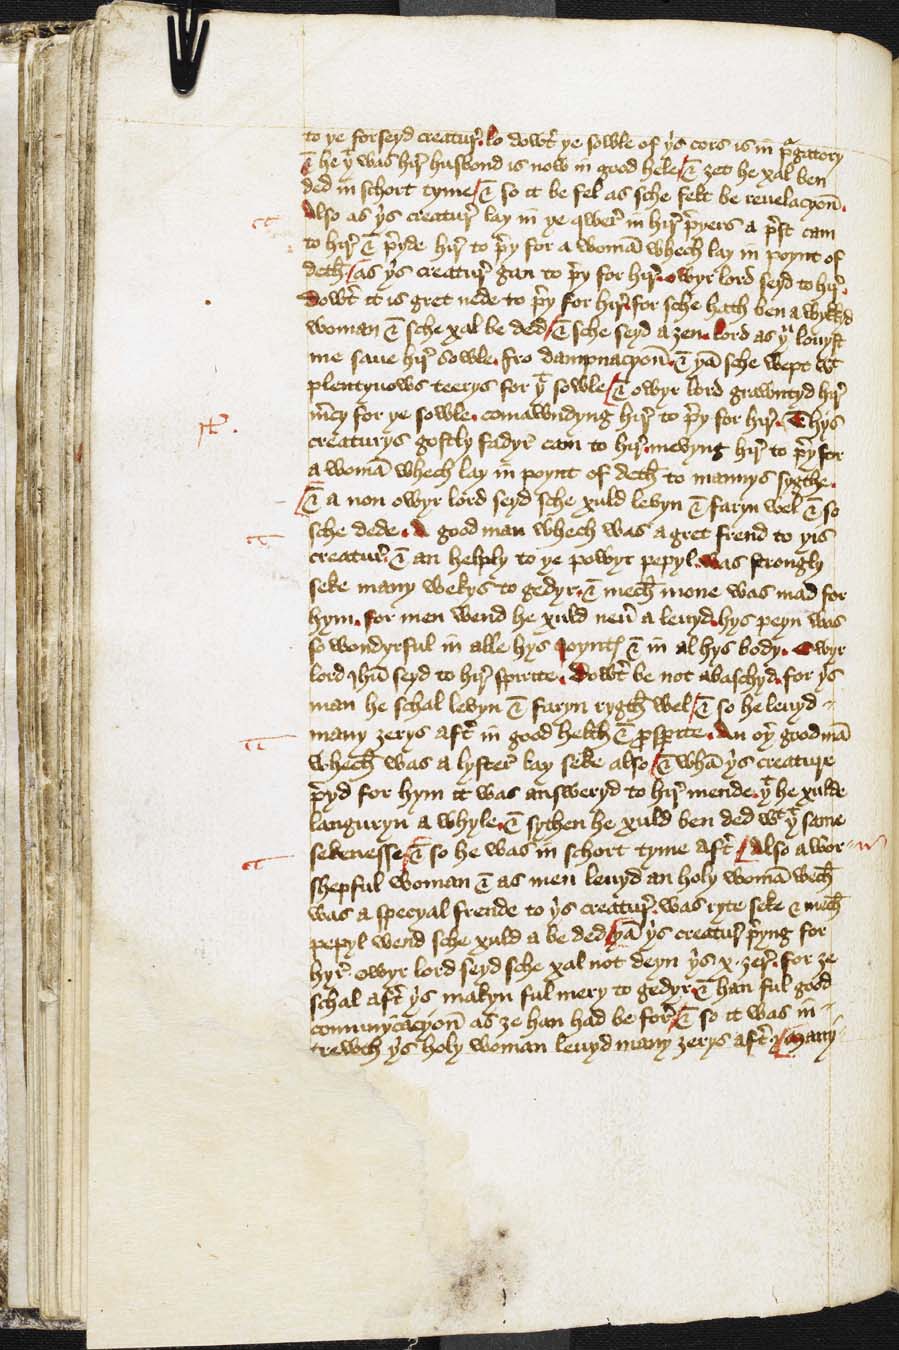 to ye forseyd creatur̛. lo dowt̛ ye sowle of ẏs cors is in p̛gatory
⁊ he yͭ was hir̛ husbond is now in good hele / ⁊ ȝet he xal ben
ded in schort tyme / ⁊ so it be fel as sche felt be reuelacyon̄.
Also as ẏs creatur̛ lay in ye qwer̛ in hir̛ p̛yers a p̛st cam
to hir̛ ⁊ p̛yde hir̛ to p̛y for a womā whech lay in poynt of
deth / as ẏs creatur̛ gan to p̛y for hir̛. owyr lord seyd to hir̛.
Dowt̛ it is gret nede to p̛y for hir̛. for sche hath ben a wykkyd
woman ⁊ sche xal be ded / ⁊ sche seyd a ȝen. lord as yͧ louyst
me saue hir̛ sowle. fro dampnacyon̄. ⁊ yā sche wept wͭ
plentyuows teerys for yͭ sowle / ⁊ owyr lord grawntyd hir̛
m̛cy for ye sowle. comawndyng hir̛ to p̛y for hir̛. Thys
creaturys gostly fadyr cam to hir̛. mevyng hir̛ to p̛y for
a womā whech lay in poynt of deth to mannys sygthe.
⁊ a non owyr lord seyd sche xuld levyn ⁊ faryn wel ⁊ so
sche dede. A good man whech was a gret frend to yis
creatur̛. ⁊ an helply to ye powyr pepyl. was strongly
seke many wekys to gedyr. ⁊ mech mone was mad for
hym. for men wend he xuld neư a leuyd. hys peyn was
so wondyrful in alle hys joyntꝭ ⁊ in al hys body. Owyr
lord jhū seyd to hir̛ spirite. Dowt̛ be not abaschyd. for ẏs
man he schal levyn ⁊ faryn rygth wel / ⁊ so he leuyd
many ȝerys aft̛ in good helth ⁊ ꝓsp̛ite. An oy̛ good mā
whech was a lyster̛ lay seke also / ⁊ whā ẏs creature
p̛yd for hym it was answeryd to hir̛ mende. yͭ he xulde
languryn a whyle. ⁊ sythen he xuld ben ded wͭ yͭ same
sekenesse. ⁊ so he was in schort tyme aft̛ / Also a wor-
shepful woman ⁊ as men leuyd an holy womā wech
was a specyal frende to ẏs creatur̛. was ryte seke ⁊ mech
pepyl wend sche xuld a be ded / yā ẏs creatur̛ p̛yng for
hyr̛ owyr lord seyd sche xal not deyn ẏs x. ȝer̛. for ȝe
schal aft̛ ẏs makyn ful mery to gedyr. ⁊ han ful good
comunycacyon̄ as ȝe han had be for̛ / ⁊ so it was in
trewth ẏs holy woman leuyd many ȝerys aft̛ / Many